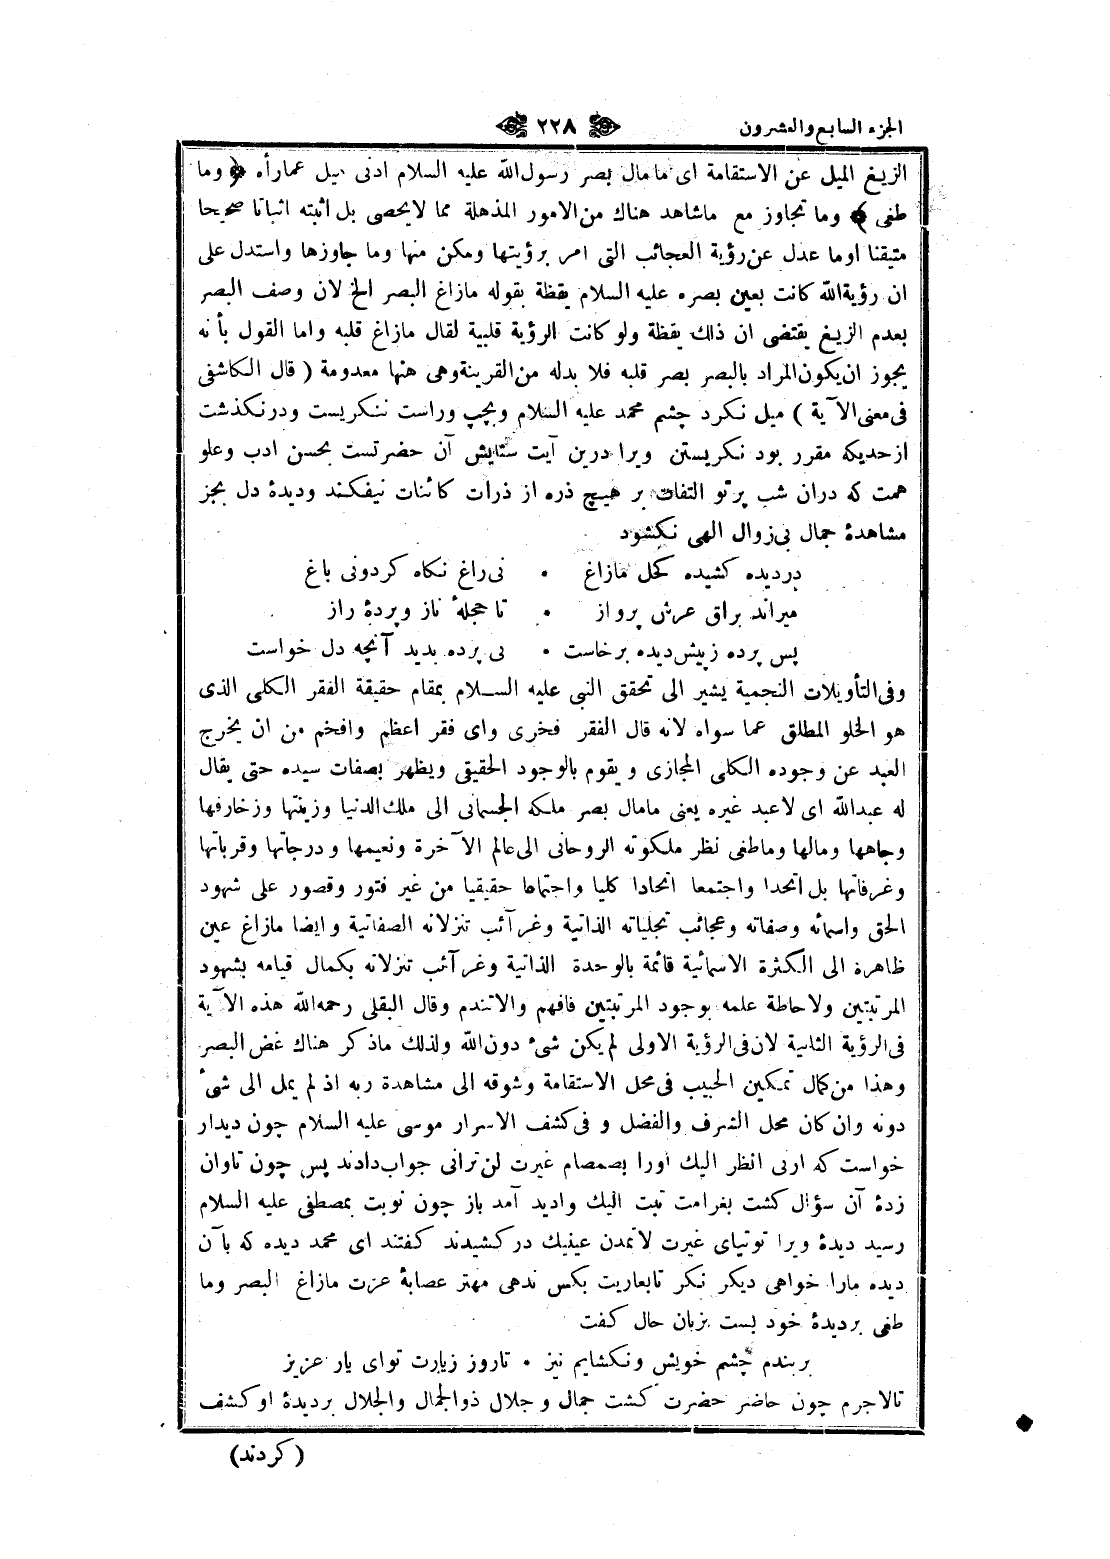 الجزء السابع والعشرون
٢٢٨
الزيغ الميل عن الاستقامة اى مامال بصر رسول الله عليه السلام ادنى ميل عمارأه ﴿ وما
طغى ﴾ وما تجاوز مع ماشاهد هناك من الامور المذهلة مما لايحصى بل اثبته اثباتا صحيحا
متيقنا اوما عدل عن رؤية العجائب التى امر برؤيتها ومكن منها وما جاوزها واستدل على
ان رؤية الله كانت بعين بصره عليه السلام يقظة بقوله مازاغ البصر الخ لان وصف البصر
بعدم الزيغ يقتضى ان ذلك يقظة ولو كانت الرؤية قلبية لقال مازاغ قلبه واما القول بأنه
يجوز ان يكون المراد بالبصر بصر قلبه فلا بدله من القرينة وهى هنها معدومة ( قال الكاشفى
فى معنى الآية ) ميل نكرد چشم محمد عليه السلام وبچپ وراست ننكريست ودرنكذشت
از حديكه مقرر بود نكريستن ويرا درين آيت ستايش آن حضرتست بحسن ادب وعلو
همت كه دران شب پرتو التفات بر هيچ ذره از ذرات كائنات نيفكند وديدۀ دل بجز
مشاهدۀ جمال بى زوال الهى نكشود
در ديده كشيده كحل مازاغ • نى راغ نكاه كردونى باغ
ميراند براق عرش پرواز • تا حجلۀ ناز وپردۀ راز
پس پرده زپيش ديده برخاست • بى پرده بديد آنچه دل خواست
وفى التأويلات النجمية يشير الى تحقق النبى عليه السلام بمقام حقيقة الفقر الكلى الذى
هو الخلو المطلق عما سواه لانه قال الفقر فخرى واى فقر اعظم وافخم من ان يخرج
العبد عن وجوده الكلى المجازى و يقوم بالوجود الحقيقى ويظهر بصفات سيده حتى يقال
له عبدالله اى لاعبد غيره يعنى مامال بصر ملكه الجسمانى الى ملك الدنيا وزينتها وزخارفها
وجاهها ومالها وماطغى نظر ملكوته الروحانى الى عالم الآخرة ونعيمها ودرجاتها وقرباتها
وغرفاتها بل اتحدا واجتمعا اتحادا كليا واجتماعا حقيقيا من غير فتور وقصور على شهود
الحق واسمائه وصفاته وعجائب تجلياته الذاتية وغرآئب تنزلاته الصفاتية وايضا مازاغ عين
ظاهرة الى الكثرة الاسمائية قائمة بالوحدة الذاتية وغرآئب تنزلاته بكمال قيامه بشهود
المرتبتين ولاحاطة علمه بوجود المرتبتين فافهم والاتندم وقال البقلى رحمه الله هذه الآية
فى الرؤية الثانية لان فى الرؤية الاولى لم يكن شئ دون الله ولذلك ماذكر هناك غض البصر
وهذا من كمال تمكين الحبيب فى محل الاستقامة وشوقه الى مشاهدة ربه اذ لم يمل الى شئ
دونه وان كان محل الشرف والفضل و فى كشف الاسرار موسى عليه السلام چون ديدار
خواست كه ارنى انظر اليك اورا بصمصام غيرت لن ترانى جواب دادند پس چون تاوان
زدۀ آن سؤال كشت بغرامت تبت اليك واديد آمد باز چون نوبت بمصطفى عليه السلام
رسيد ديدۀ ويرا توتياى غيرت لاتمدن عينيك در كشيدند كفتند اى محمد ديده كه بآن
ديده مارا خواهى ديكر نكر تابعاريت بكس ندهى مهتر عصابۀ عزت مازاغ البصر وما
طغى برديدۀ خود بست بزبان حال كفت
بربندم چشم خويش ونكشايم نيز • تاروز زيارت تواى يار عزيز
تالاجرم چون حاضر حضرت كشت جمال و جلال ذوالجمال والجلال برديدۀ او كشف
(كردند)